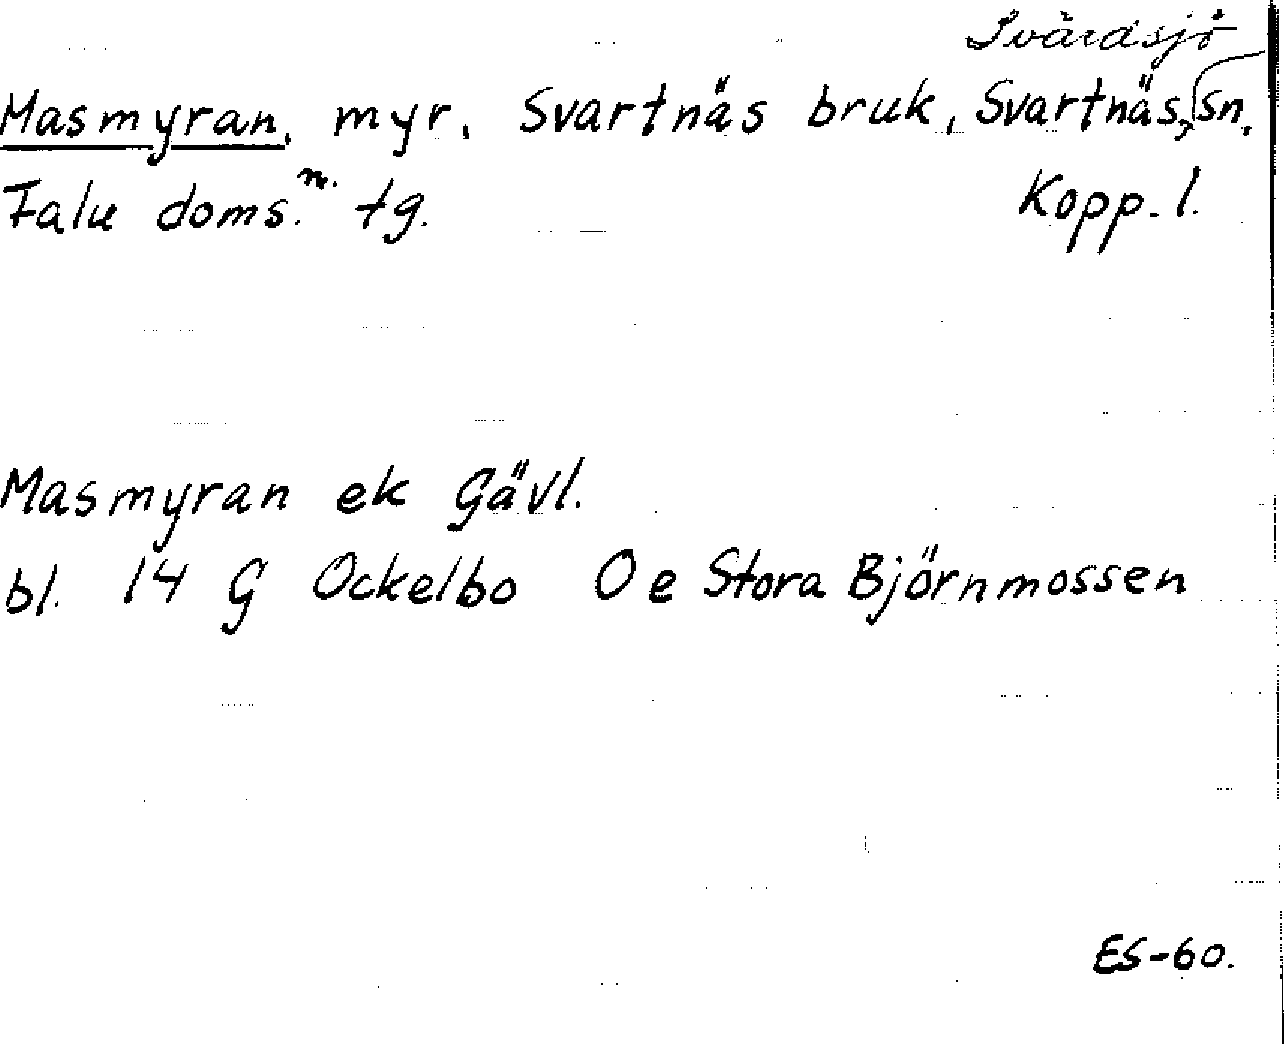 Svärdsjö
Masmyran, myr, Svartnäs bruk, Svartnäs, sn.
Falu doms. n. tg. Kopp. l.
Masmyran ek Gävl.
bl. 14 G Ockelbo O e Stora Björnmossen
ES-60.